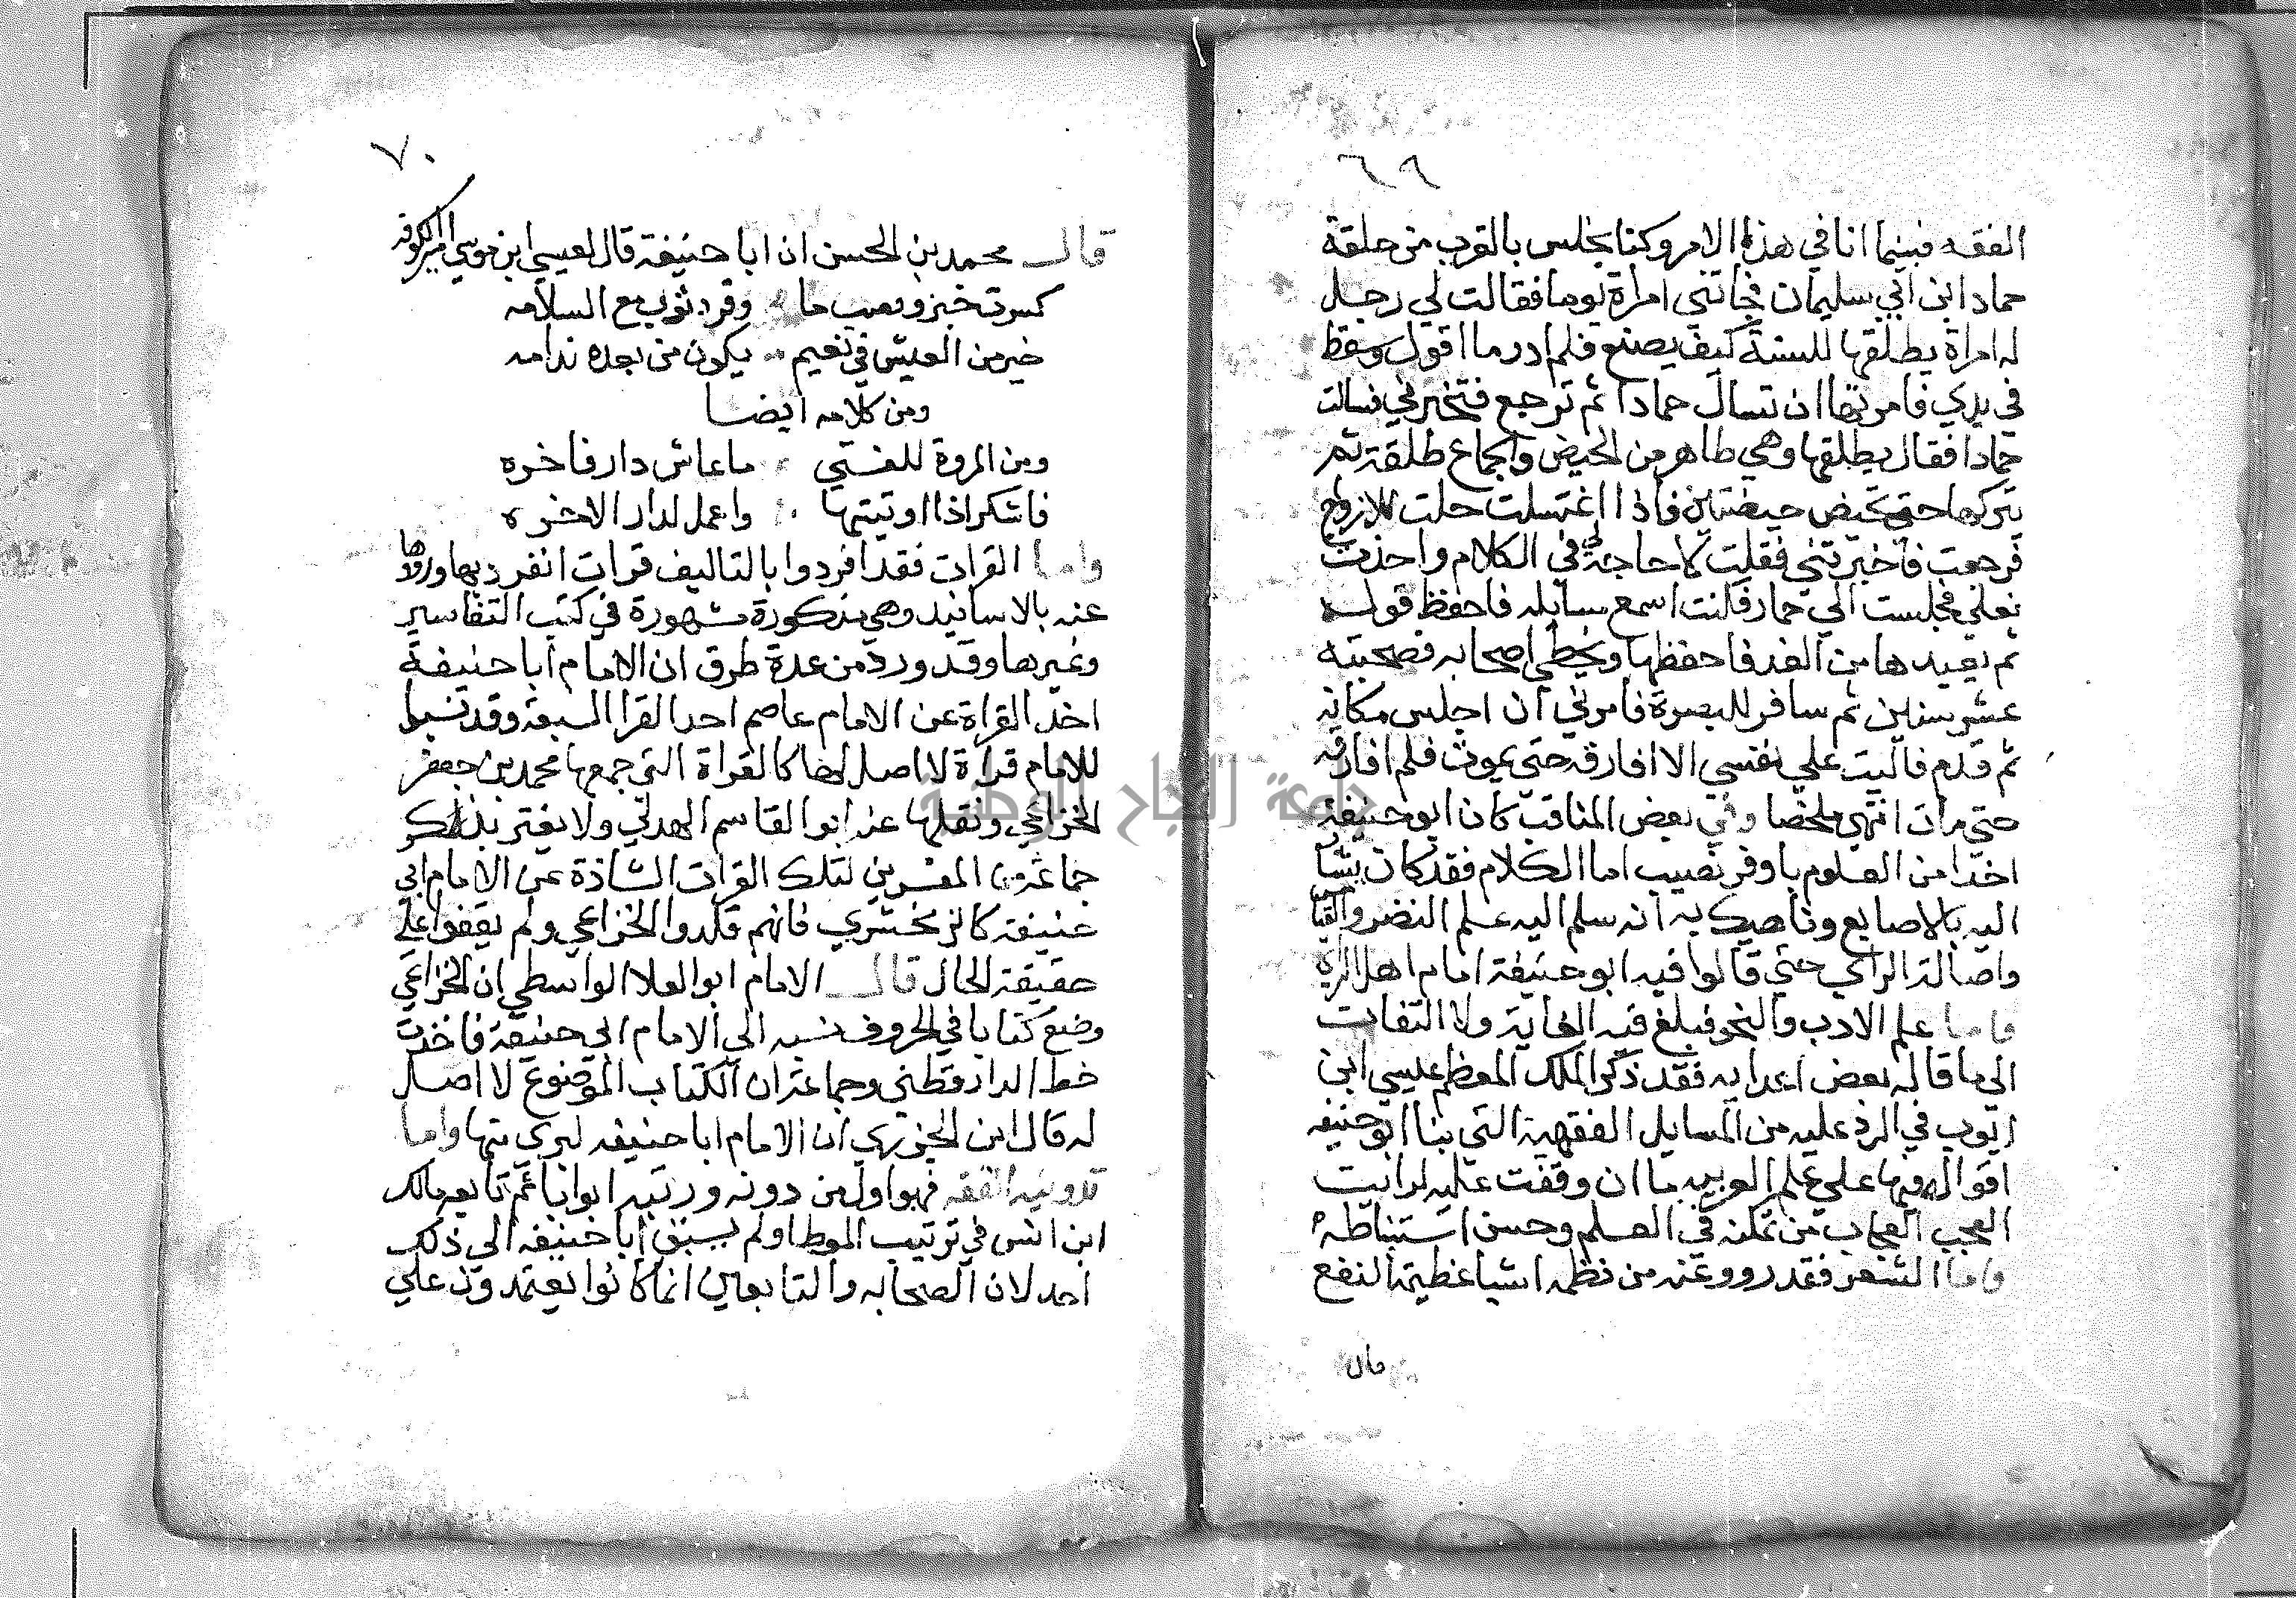 ٦٩
الفقه فبينما انا في هذا الامر وكنا نجلس بالقرب من حلقة
حماد ابن ابي سليمان فجاتني امراة يوما فقالت لي رجل
له امراة يطلقها للسنة كيف يصنع فلم ادر ما اقول وسقط
في يدي فامرتها ان تسال حمادا ثم ترجع فتخبرني فسالت
حمادا فقال يطلقها وهي طاهر من الحيض والجماع طلقة ثم
يتركها حتى تحيض حيضتين فاذا اغتسلت حلت للازواج
فرجعت فاخبرتني فقلت لا حاجة لي في الكلام واخذت
نعلي فجلست الي حماد فكنت اسمع مسايله فاحفظ قوله
ثم يعيدها من الغد فاحفظها ويخطي اصحابه فصحبته
عشر سنين ثم سافر للبصرة فامرني ان اجلس مكانه
ثم قدم فاليت علي نفسي الا افارقه حتي يموت فلم افارقه
حتي مات انتهي ملخصا وفي بعض المناقب كان ابو حنيفة
اخذا من العلوم باوفر نصيب اما الكلام فقد كان يشار
اليه بالاصابع وناهيك به انه سلم اليه علم النضر والقياس
واصالة الراي حتي قالوا فيه ابو حنيفة امام اهل الراي
واما علم الادب والنحو فبلغ فيه الغاية ولا التفات
الى ما قاله بعض اعدايه فقد ذكر الملك المعظم عيسي ابن
ايوب في الرد عليه من المسايل الفقهية التي بنا ابو حنيفه
اقواله فيها علي علم العربيه ما ان وقفت عليه لرايت
العجب العجاب من تمكنه في العلم وحسن استنباطه
واما الشعر فقد رووا عنه من نظمه اشيا عظيمة النفع
قال
٧٠
قال محمد بن الحسن ان ابا حنيفة قال لعيسي ابن موسي امير الكوفه
كسرت خبز وقعب ما وفرد ثوب مع السلامه
خير من العيش في نعيم يكون من بعده ندامه
ومن كلامه ايضا
ومن المروة للفتي ما عاش دار فاخره
فاشكر اذا اوتيتها واعمل لدار الاخره
واما القرات فقد افردوا بالتاليف قرات انفرد بها ورووها
عنه بالاسانيد وهي مذكورة مشهورة في كتب التفاسير
وغيرها وقد ورد من عدة طرق ان الامام ابا حنيفة
اخذ القراة عن الامام عاصم احد القرا السبعة وقد نسبوا
للامام قراة لا اصل لها كالقراة التي جمعها محمد بن جعفر
الخزاعي ونقلها عنه ابو القاسم الهدلي ولا يغتر بذلك
جماعة من المفسرين لتلك القرات الشاذة عن الامام ابي
حنيفة كالزمخشري فانهم قلدوا الخزاعي ولم يقفوا علي
حقيقة الحال قال الامام ابو العلا الواسطي ان الخزاعي
وضع كتابا في الحروف نسبه الى الامام ابي حنيفة فاخذت
خط الدارقطني وجماعة ان الكتاب الموضوع لا اصل
له قال ابن الجزري ان الامام ابا حنيفه لبري منها واما
تدوينه الفقه فهو اول من دونه ورتبه ابوابا ثم تابعه مالك
ابن انس في ترتيب الموطا ولم يسبق ابا حنيفه الي ذلك
احد لان الصحابه والتابعين انما كانوا يعتمدون علي
جامعة النجاح الوطنية